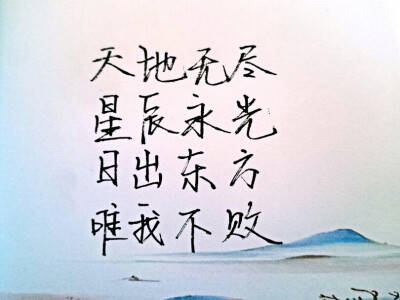 天地无尽
星辰永光
日出东方
唯我不败